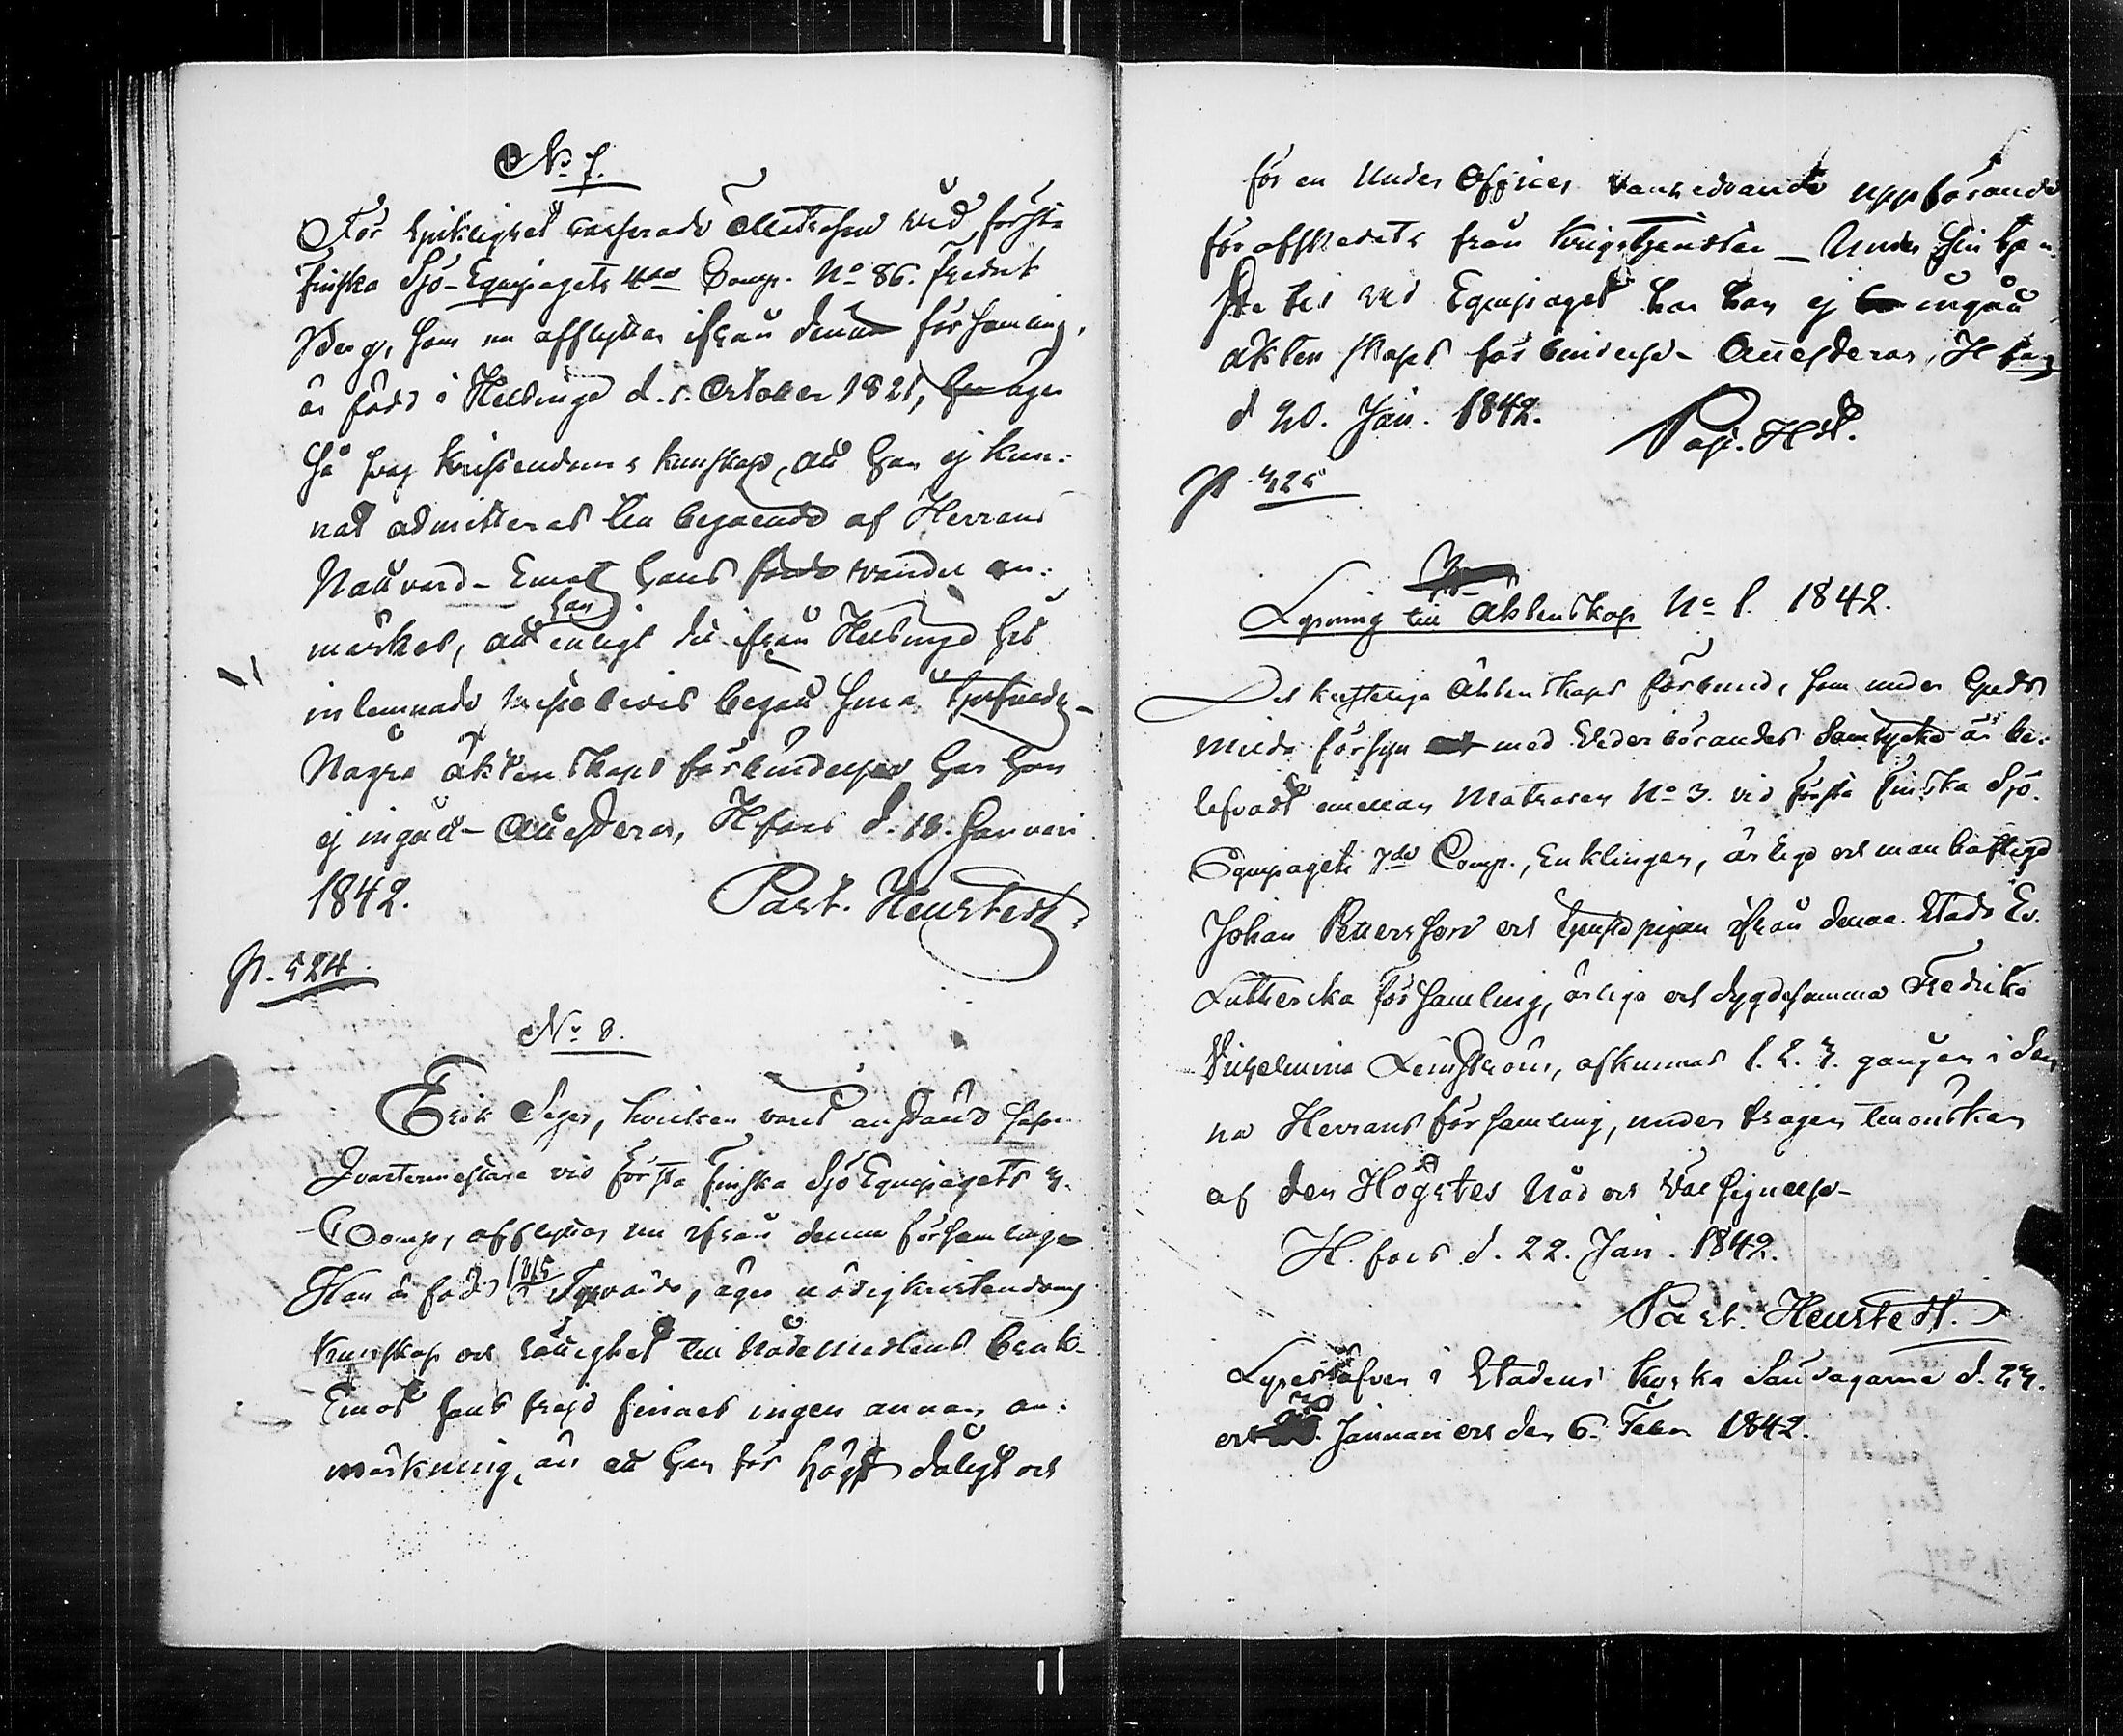 No 7.
För sjuklighet casserade Matrosen vid första
finska Sjö-Equipagets 4de Comp. No 86. Fredrik
Berg, som nu afflyttar ifrån denna församling,
är född i Helsinge d. 5. October 1821, äger
så svag kristendoms kunskap, att han ej kun-
nat admitteras till begående af Herrans
Nattvard - Emot hans vandel an-
märkes, att han enligt det ifrån Helsinge hit
inlemnade betyg begått
Några äktenskaps förbindelser har han
ej ingått - Attesteras, H.fors d. 18. Januari
1842. Past. Heurstedt
p. 524
No 8.
Erik Seger, hvilken varit anstäld såsom
Qvartermästare vid första finska Sjö Equipagets 3.
Comp, afflyttar nu ifrån denna församling
Han är född 1815 i Tyrvändo, äger nödig kristendoms
kunskap och rättighet till Nådemedlens bruk -
Emot hans frejd finnes ingen annan an-
märkning, än att han för högst dåligt och
för en Under Officer vanhedrande uppförande
för afskedats från krigstjensten - Under sin tjen-
ste tid vid Equipaget har han ej ingått
äktenskaps förbindelse - Attesteras, H.fors
d 20. Jan. 1842. Past. Hdt.
p. 425
Lysning till Äktenskap No 1. 1842.
Det kristeliga Äktenskaps förbund, som under Guds
milda försyn med Vederbörandes Samtycke är be-
lefvadt emellan Matrosen No 3. vid första finska Sjö
Equipagets 7de Comp., Enklingen, ärlige och manhaftige
Johan Pettersson och tjenstepigan ifrån denna Stads Ev.
Lutherska församling, ärliga och dygdesamma Fredrika
Vilhelmina Lindström, afkunnas 1. 2. 3. gången i den-
na Herrans församling, under trägen tillönskan
af den Högstes Nåd och Välsignelse -
H.fors d. 22. Jan. 1842.
Past. Heurstedt.
i Stadens kyrka Söndagarne d. 23.
och 30. Januari och den 6. Febr 1842.